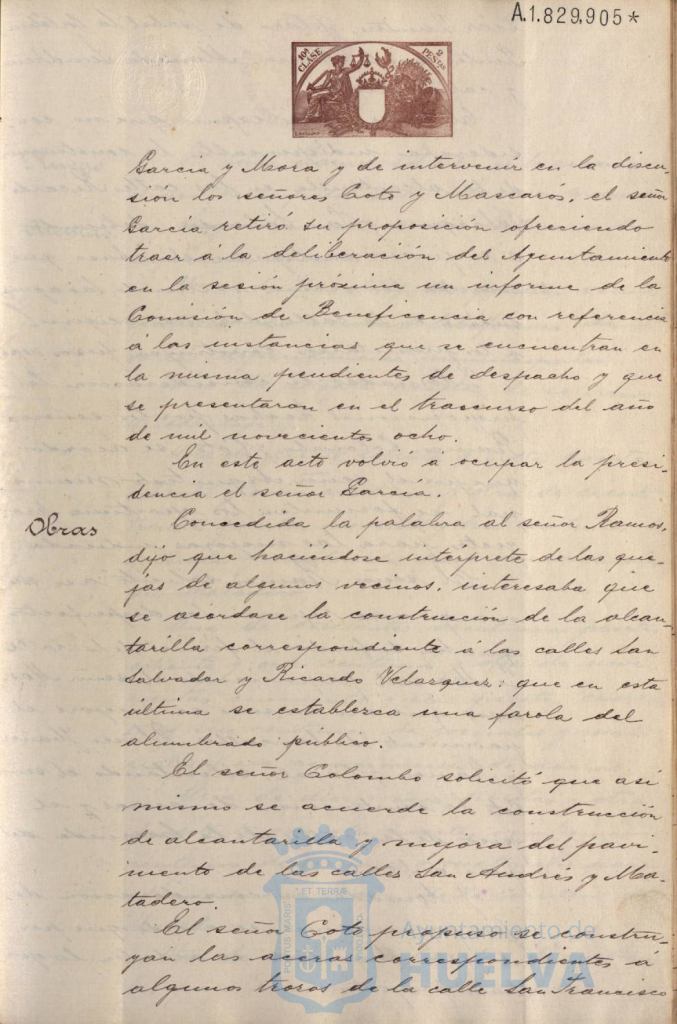 A.1.829.905*
10ª CLASE 2 PESTAS
García y Mora y de intervenir en la discu-
sión los señores Coto y Mascarós, el señor
García retiró su proposición ofreciendo
traer á la deliberación del Ayuntamiento
en la sesión próxima un informe de la
Comisión de Beneficencia con referencia
á las instancias que se encuentran en
la misma pendientes de despacho y que
se presentaron en el trascurso del año
de mil novecientos ocho.
En este acto volvió á ocupar la presi-
dencia el señor García.
Obras
Concedida la palabra al señor Ramos,
dijo que haciéndose intérprete de las que-
jas de algunos vecinos, interesaba que
se acordase la construcción de la alcan-
tarilla correspondiente á las calles San
Salvador y Ricardo Velazquez: que en esta
última se establezca una farola del
alumbrado público.
El señor Colombo solicitó que así
mismo se acuerde la construcción
de alcantarilla y mejora del pavi-
mento de las calles San Andrés y Ma-
tadero.
El señor Coto propuso se constru-
yan las aceras correspondientes á
algunos trozos de la calle San Francisco
PORTUS MARIS ET TERRAE CUSTODIA
Ayuntamiento de
HUELVA